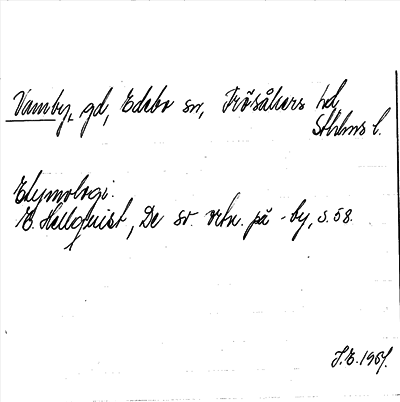 Vamby, gd, Edebo sn, Frösåkers hd,
Sthlms l.
Etymologi.
E. Hellquist, De sv. ortn. på -by, s. 58.